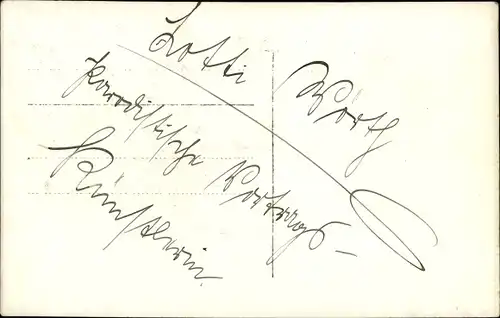 Lotti Wörth
parodistische Vortrags-
Künstlerin